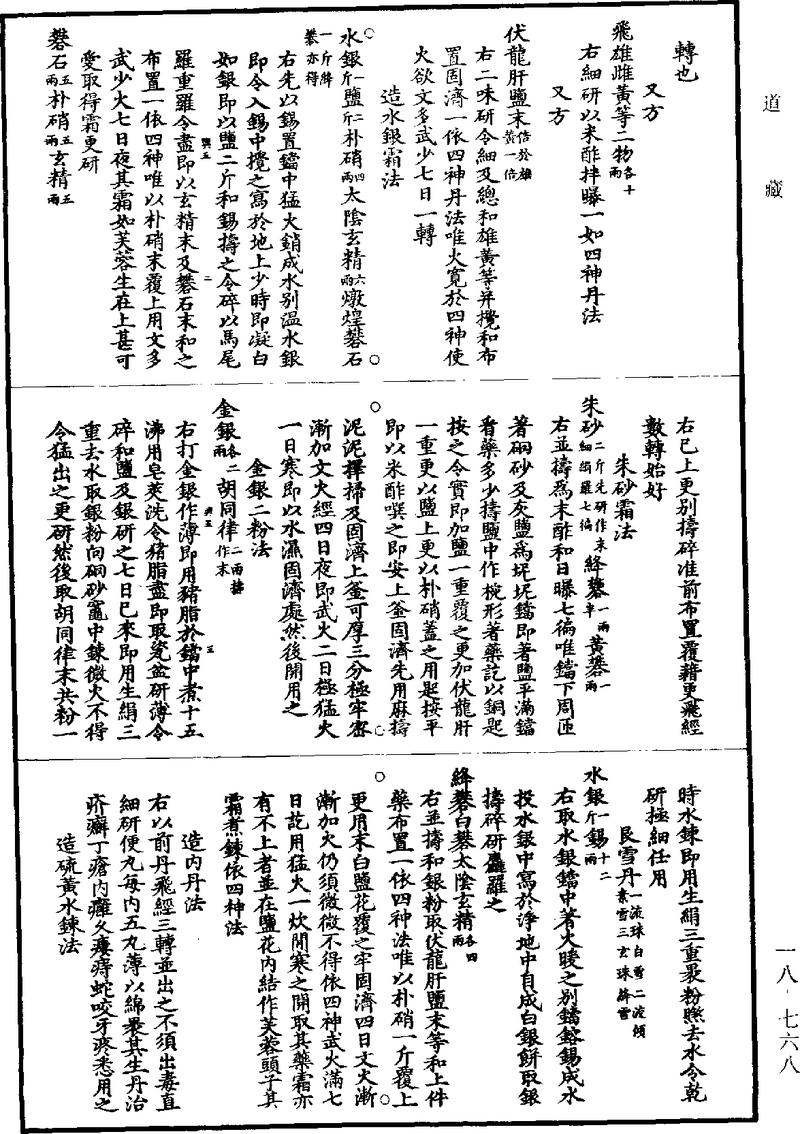 道藏
轉也
又方
飛雄雌黃等二物各十兩
右細研以米酢拌曝一如四神丹法
又方
伏龍肝鹽末倍於雄黃一倍
右二味研令細及總和雄黃等并攪和布
置固濟一依四神丹法唯火寬於四神使
火欲文多武少七日一轉
造水銀霜法
水銀一斤鹽二斤朴硝四兩太陰玄精六兩燉煌礬石
一斤絳礬亦得
右先以錫置鐺中猛火銷成水別溫水銀
即令入錫中攪之寫於地上少時即凝白
如銀即以鹽二斤和錫擣之令碎以馬尾
羅重羅令盡即以玄精末及礬石末和之
布置一依四神唯以朴硝末覆上用文多
武少火七日夜其霜如芙蓉生在上甚可
愛取得霜更研
礬石五兩朴硝五兩玄精五兩
右已上更別擣碎准前布置覆藉更飛經
數轉始好
朱砂霜法
朱砂二斤先研作末細絹羅七徧絳礬一兩半黃礬一兩
右並擣為末酢和日曝七徧唯鐺下周匝
著硇砂及灰鹽為坭坭鐺即著鹽平滿鐺
看藥多少擣鹽中作椀形著藥訖以銅匙
按之令實即加鹽一重覆之更加伏龍肝
一重更以鹽上更以朴硝蓋之用匙按平
即以米酢噀之即安上釜固濟先用麻擣
泥泥擇掃及固濟上釜可厚三分極牢密
漸加文火經四日夜即武火二日極猛火
一日寒即以水濕固濟處然後開用之
金銀二粉法
金銀各二兩胡同律二兩擣作末
右打金銀作薄即用豬脂於鐺中煮十五
沸用皁莢洗令豬脂盡即取瓷盆研薄令
碎和鹽及銀研之七日已來即用生絹三
重去水取銀粉向硇砂䀋中鍊微火不得
令猛出之更研然後取胡同律末共粉一
時水鍊即用生絹三重裹粉煞去水令乾
研極細任用
艮雪丹一流珠白雪二流傾素雪三玄珠絳雪
水銀一斤錫十二兩
右取水銀鐺中著火暖之別鐺鎔錫成水
投水銀中寫於淨地中自成白銀餅取銀
擣碎研麤羅之
絳礬白礬太陰玄精各四兩
右並擣和銀粉取伏龍肝鹽末等和上件
藥布置一依四神法唯以朴硝一斤覆上
更用末白鹽花覆之牢固濟四日文火漸
漸加火仍須微微不得依四神武火滿七
日訖用猛火一炊閒寒之開取其藥霜亦
有不上者並在鹽花內結作芙蓉頭子其
霜煮鍊依四神法
造內丹法
右以前丹飛經三轉並出之不須出毒直
細研便丸每內五丸薄以綿裹其生丹治
疥癬丁瘡內癰久瘻痔蛇咬牙疼悉用之
造硫黃水鍊法
一八·七六八